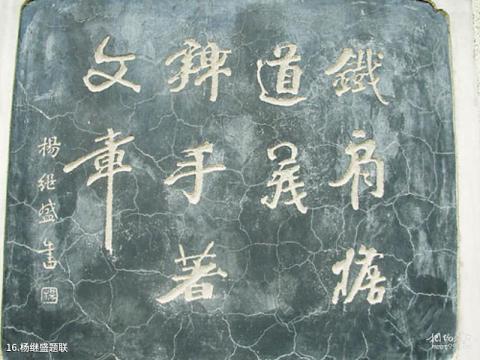 鐵肩擔
道義
辣手著
文章
楊继盛書
16.杨继盛题联